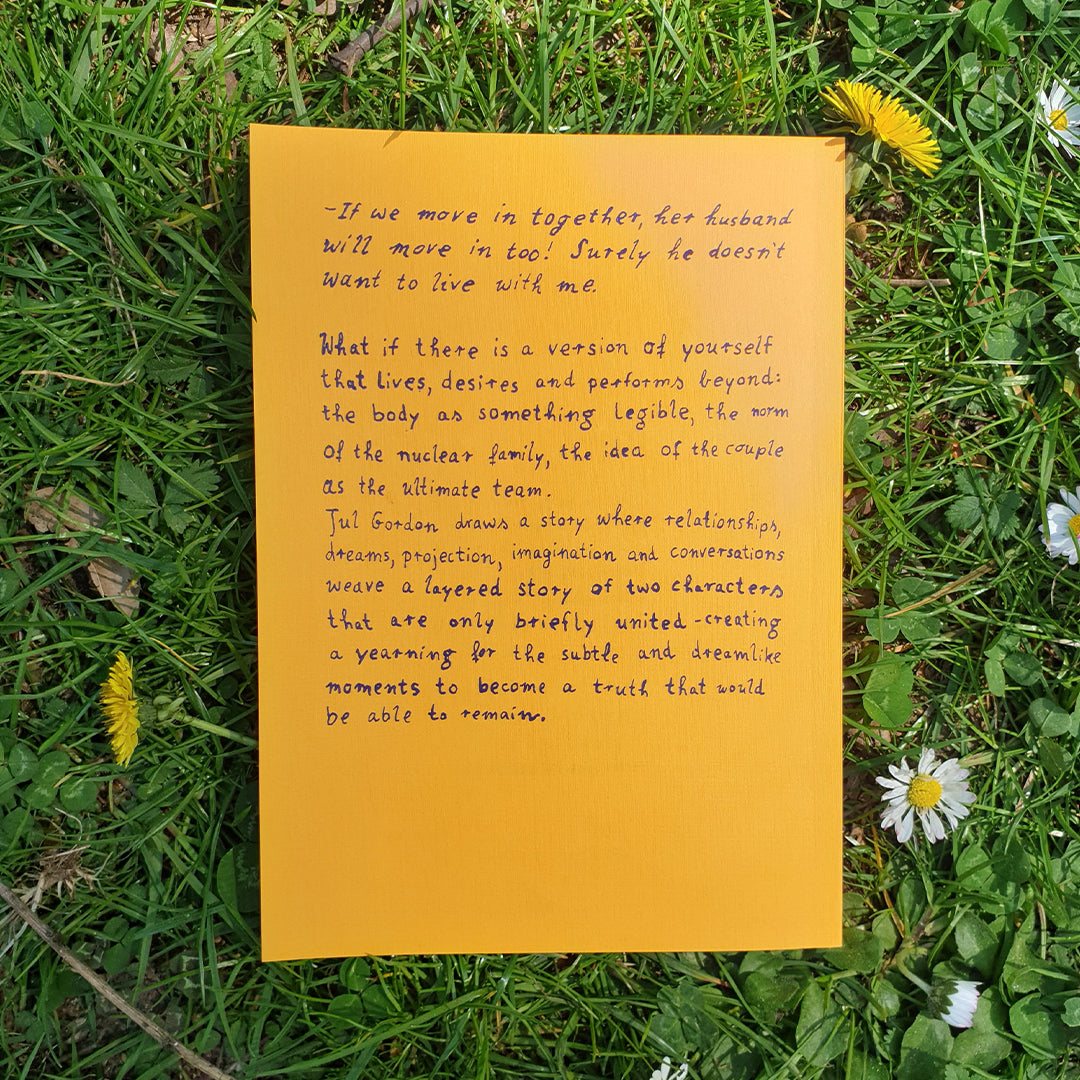 -If we move in together, her husband
will move in too! Surely he doesn't
want to live with me.
What if there is a version of yourself
that lives, desires and performs beyond:
the body as something legible, the norm
of the nuclear family, the idea of the couple
as the ultimate team.
Jul Gordon draws a story where relationships,
dreams, projection, imagination and conversations
weave a layered story of two characters
that are only briefly united - creating
a yearning for the subtle and dreamlike
moments to become a truth that would
be able to remain.